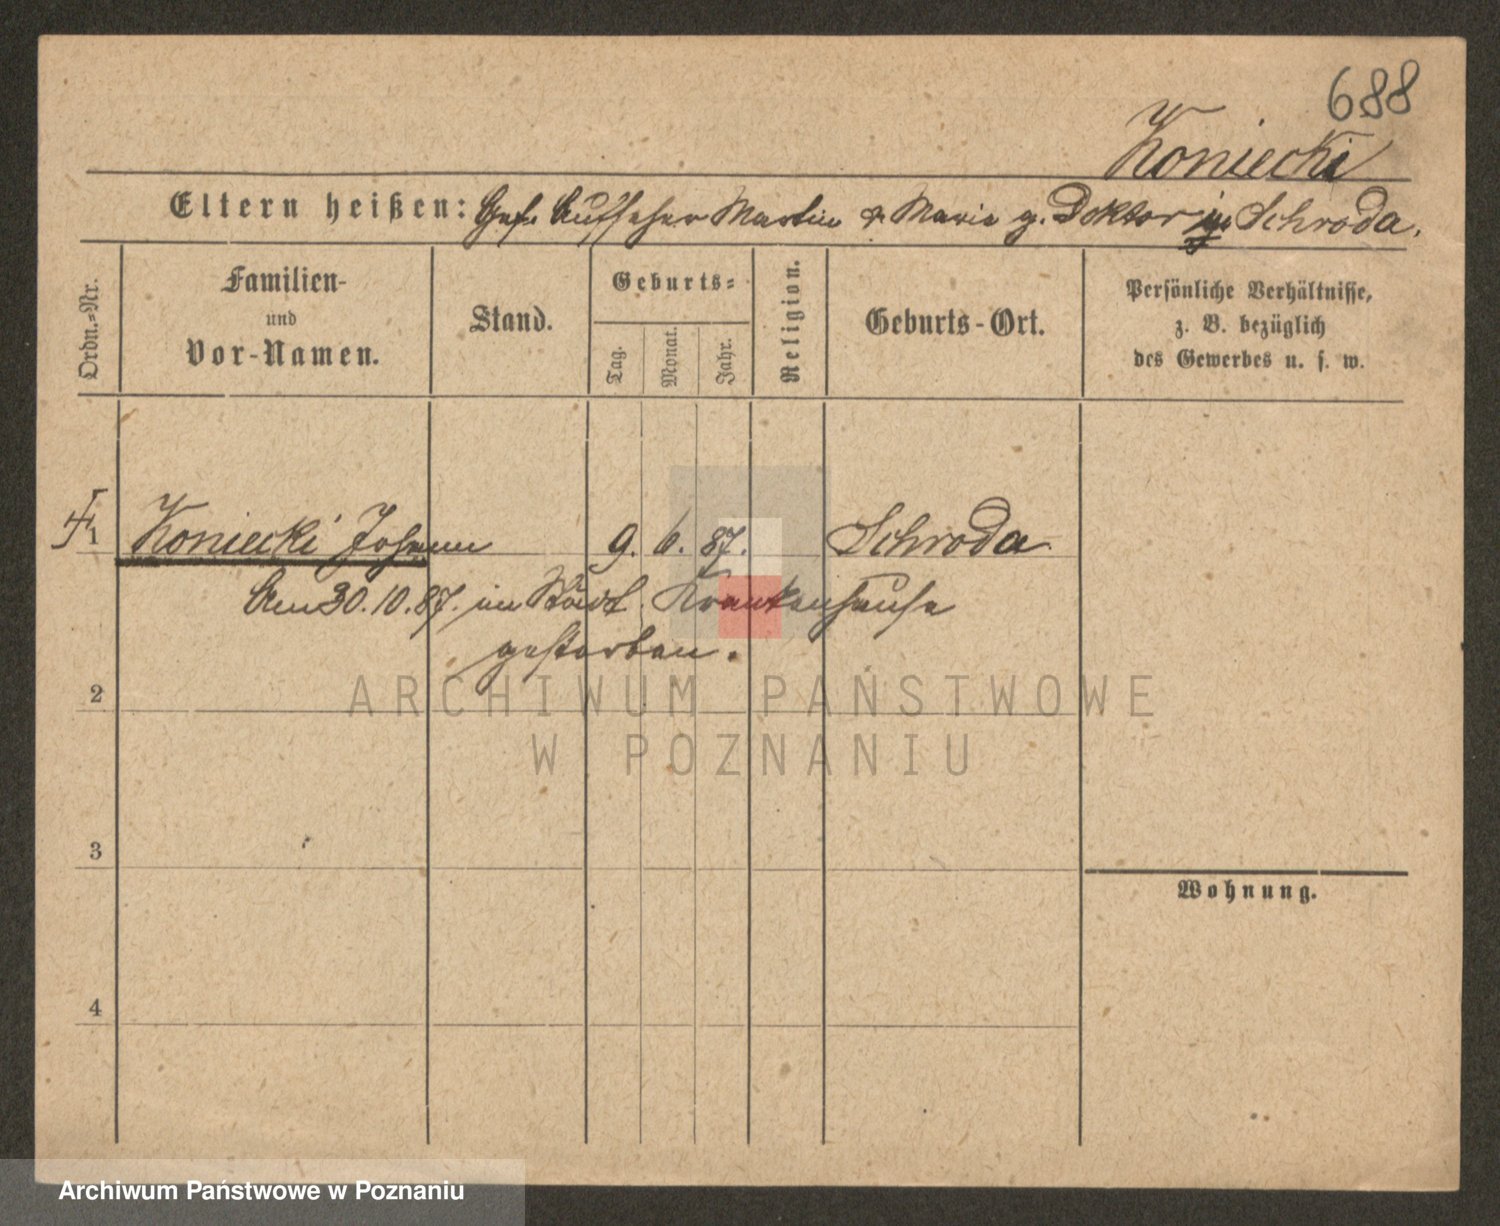 688
Koniecki
Eltern heißen: Gef. Aufseher Martin & Marie g. Doktor in Schroda.
Ordn.-Nr.
Familien-
und
Vor-Namen.
Stand.
Geburts-
Tag.
Monat.
Jahr.
Religion.
Geburts-Ort.
Persönliche Verhältnisse,
z. B. bezüglich
des Gewerbes u. s. w.
1 Koniecki Johann 9. 6. 87. Schroda
Am 30.10.87. im Städt. Krankenhause
gestorben.
2
ARCHIWUM PAŃSTWOWE
W POZNANIU
3
Wohnung.
4
Archiwum Państwowe w Poznaniu